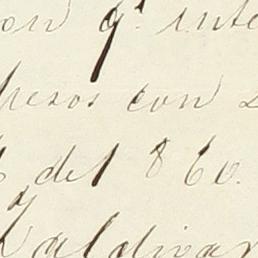 on q.e inte
pesos con
del 1860.
Valdivar